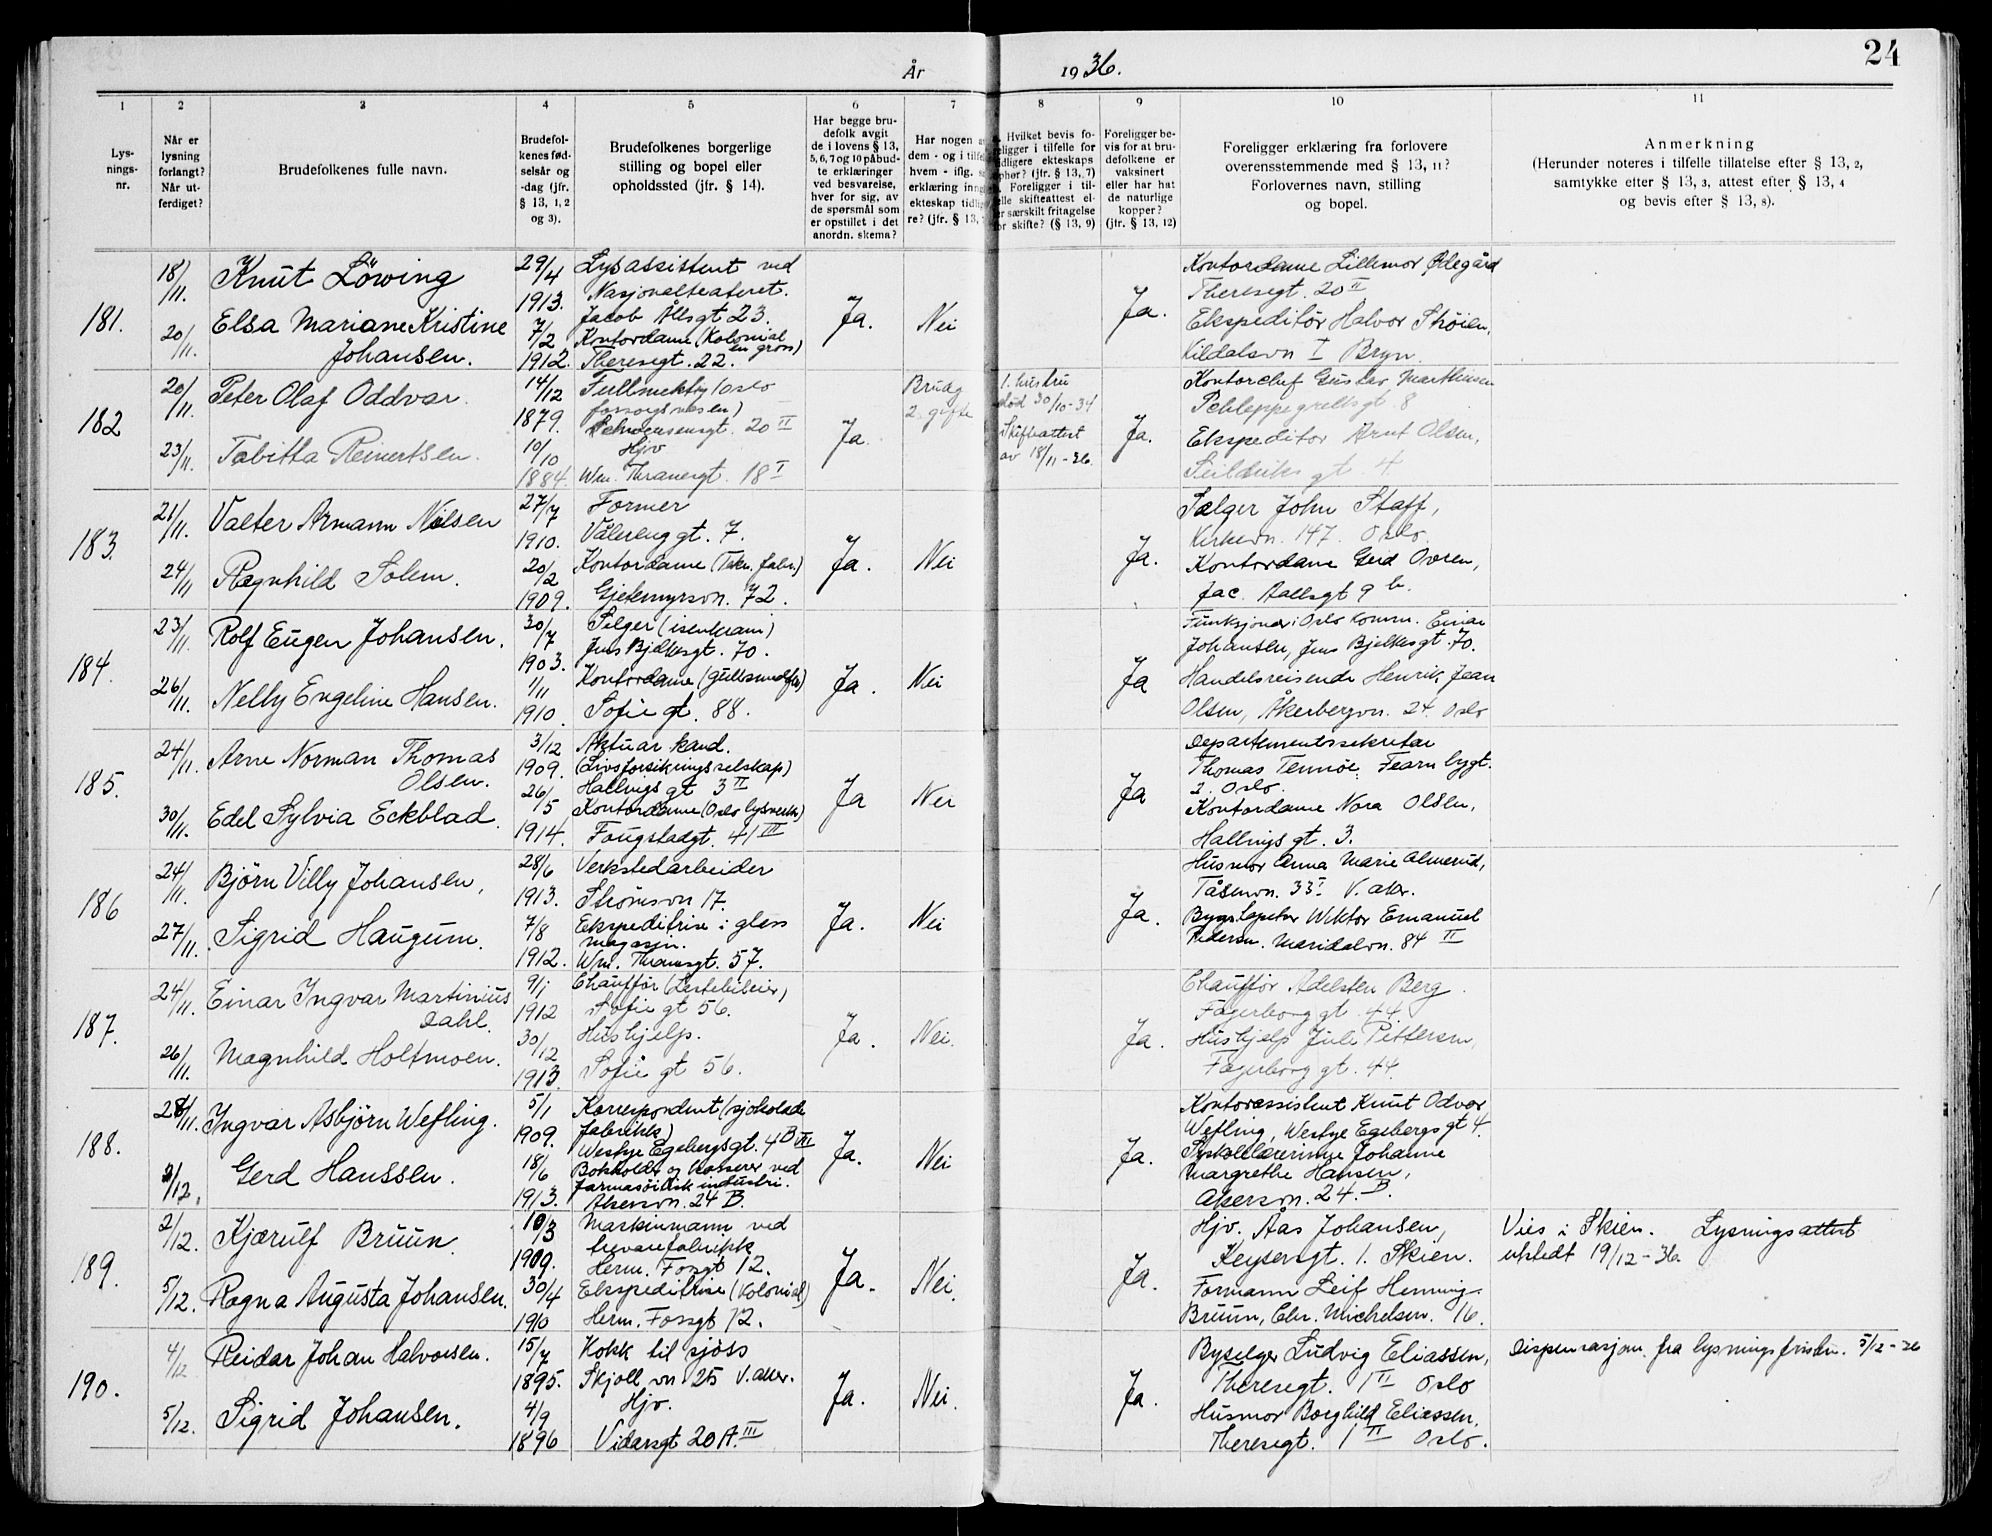 År 1936.
24
1 2 3 4 5 6 7 8 9 10 11
Lys-
nings-
nr.
Når er
lysning
forlangt?
Når ut-
ferdiget?
Brudefolkenes fulle navn.
Brudefol-
kenes fød-
selsår og
-dag (jfr.
§ 13, 1, 2
og 3).
Brudefolkenes borgerlige
stilling og bopel eller
opholdssted (jfr. § 14).
Har begge bru-
defolk avgit
de i lovens § 13,
5, 6, 7 og 10 påbud-
te erklæringer
ved besvarelse,
hver for sig, av
de spørsmål som
er opstillet i det
anordn. skema?
Har nogen
dem - og i tilf
hvem - iflg.
erklæring inng
ekteskap tidlig
re? (jfr. § 13,
Hvilket bevis fo-
religger i tilfelle for
tidligere ekteskaps
ophør? (jfr. § 13, 7)
Foreligger i til-
felle skifteattest el-
er særskilt fritagelse
for skifte? (§ 13, 9)
Foreligger be-
vis for at bru-
defolkene er
vaksinert
eller har hat
de naturlige
kopper?
(jfr. § 13, 12)
Foreligger erklæring fra forlovere
overensstemmende med § 13, 11?
Forlovernes navn, stilling
og bopel.
Anmerkning
(Herunder noteres i tilfelle tillatelse efter § 13, 2,
samtykke efter § 13, 3, attest efter § 13, 4
og bevis efter § 13, 8).
181.
18/11.
20/11.
Knut Löwing
Elsa Mariane Kristine
Johansen.
29/4
1913.
7/2
1912.
Lysassistent ved
Nasjonalteateret.
Jacob Ålls gt 23.
Kontordame (Kolonial
en gros)
Theresegt. 22.
Ja.
Nei
Ja.
Kontordame Lillemor Ødegård
Theresegt. 20 II
Ekspeditör Halvor Ströien,
Kildalsvn I Bryn.
182
20/11.
23/11.
Peter Olaf Oddvar.
Tabitta Reinertsen.
14/12
1879.
10/10
1884.
Fullmektig (Oslo
forsorgsvesen)
20 II
Hjv
Wm. Thranesgt. 18 I
Ja.
Brudg
2. gifte
1. hustru
död 30/10-34
Skifteattest
av 18/11-36.
Ja.
Kontorchef Gustav Marthinsen
Schleppegrellsgt. 8
Ekspeditör Arnt Olsen,
Seilduks gt. 4.
183.
21/11.
24/11
Valter Armann Nilsen
Ragnhild Solem.
27/7
1910.
20/2
1909.
Former
Vålereng gt. 7.
Kontordame (Tekn. fabr.)
Gjetemyrsvn. 72.
Ja.
Nei
Ja.
Selger John Staff,
Kirkevn. 147. Oslo.
Kontordame Gerd Ovren,
Jac. Aallsgt 9 b.
184.
23/11.
26/11.
Rolf Eugen Johansen.
Nelly Engeline Hansen.
30/7
1903.
1/11
1910.
Selger (isenkram)
Jens Bjelkesgt. 70.
Kontordame (gullsmedfor.)
Sofie gt. 88.
Ja.
Nei
Ja
Funksjonær i Oslo komm. Einar
Johansen, Jens Bjelkesgt. 70.
Handelsreisende Henrik Jean
Olsen, Åkerbergvn. 24. Oslo
185.
24/11.
30/11.
Arne Norman Thomas
Olsen.
Edel Sylvia Eckblad.
3/12
1909.
26/5
1914.
Aktuar kand.
(Livsforsikringsselskap)
Hallings gt 3 II
Kontordame (Oslo lysverk)
Fougstadgt. 41 III
Ja
Nei
Ja
Departementssekretær
Thomas Tennöe, Fearnleygt.
2. Oslo.
Kontordame Nora Olsen,
Hallings gt. 3.
186
24/11.
27/11.
Björn Villy Johansen,
Sigrid Haugum.
28/6
1913.
7/8
1912.
Verkstedarbeider
Strömsvn 17.
Ekspeditrise i glass
magasin.
Wm. Thranesgt. 57.
Ja.
Nei
Ja.
Husmor Anna Marie Almerud,
Tåsenvn. 33 I V. aker.
Bygn.tapetser Wiktor Emanuel
Pedersen. Maridalsvn. 84 II
187.
24/11.
26/11.
Einar Ingvar Martinius
Dahl.
Magnhild Holtmoen.
9/1
1912
30/12
1913.
Chauffør (Lastebileier)
Sofie gt 56.
Hushjelp.
Sofie gt 56.
Ja.
Nei.
Ja.
Chauffør Adelsten Berg.
Fagerborg gt. 44.
Hushjelp Juli Pettersen,
Fagerborg gt. 44.
188.
28/11.
2/12.
Ingvar Asbjörn Wefling.
Gerd Hanssen.
5/1
1909.
18/6
1913.
Korrespondent (sjokolade
fabrikk)
Westye Egebergsgt. 4 B III
Bokholder og kasserer ved
farmasöitisk industri.
Akersvn. 24 B.
Ja.
Nei
Ja.
Kontorassistent Knut Odvar
Wefling, Westye Egebergsgt 4.
Syskolelærerinne Johanne
Margrethe Hansen,
Akersvn. 24. B.
189.
2/12.
5/12.
Kjærulf Bruun.
Ragna Augusta Johansen.
10/3
1909.
30/4
1910
Maskinmann ved
trevarefabrikk
Herm. Fossgt 12.
Ekspeditrise (Kolonial)
Herm. Fossgt 12.
Ja.
Nei.
Ja.
Hjv. Aas Johansen,
Keysersgt. 1. Skien.
Formann Leif Henning
Bruun, Chr. Michelsen. 16.
Vies i Skien. Lysningsattest
utstedt 19/12-36.
190.
4/12
5/12.
Reidar Johan Halvorsen.
Sigrid Johansen.
15/7
1895.
4/9
1896
Kokk til sjöss
Skjoll vn 25 V. aker.
Hjv.
Vidarsgt 20 A. III
Ja.
Nei.
Ja.
Byselger Ludvig Eliassen,
Theresegt. 1 II Oslo
Husmor Borghild Eliassen.
Theresegt. 1 II Oslo.
Dispensasjon fra lysningsfristen. 5/12-36